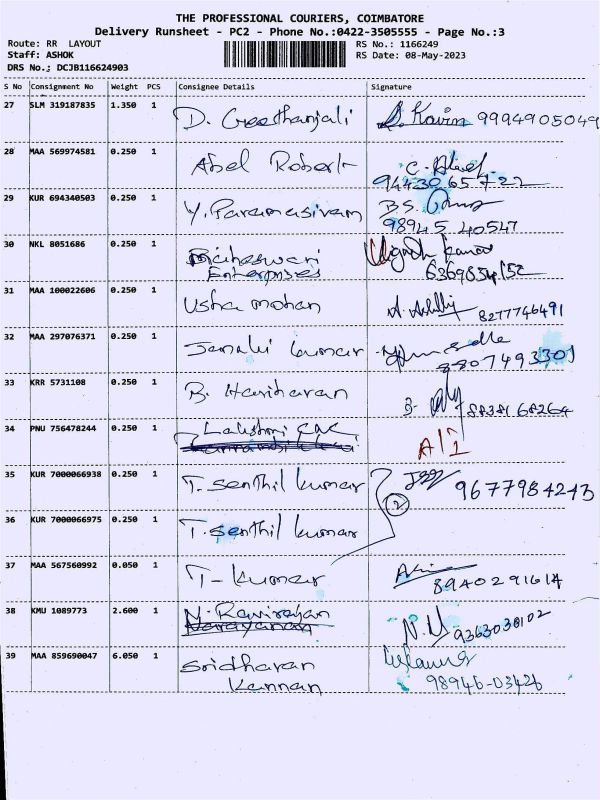 THE PROFESSIONAL COURIERS, COIMBATORE
Delivery Runsheet - PC2 - Phone No.:0422-3505555 - Page No.:3
Route: RR LAYOUT
RS No.: 1166249
Staff: ASHOK
RS Date: 08-May-2023
DRS No.; DCJB116624903
S No Consignment No Weight PCS Consignee Details Signature
27 SLM 319187835 1.350 1 D. Geethanjali Kavin 9994905049
28 MAA 569974581 0.250 1 Abel Robert
9443065722
29 KUR 694340503 0.250 1 Y. Paramasivam B.S.
98945 40547
30 NKL 8051686 0.250 1 Maheswari Kumar
Enterprises 6369834152
31 MAA 100022606 0.250 1 Usha mohan 8277746491
32 MAA 297076371 0.250 1 Janaki kumar
8807493301
33 KRR 5731108 0.250 1 B. Hariharan B-
8838168264
34 PNU 756478244 0.250 1 Lakshmi
35 KUR 7000066938 0.250 1 T. Senthil kumar 9677984243
2
36 KUR 7000066975 0.250 1 T. Senthil kumar
37 MAA 567560992 0.050 1 T- kumar
8940291614
38 KMU 1089773 2.600 1 N. Ravirajan N.
Narayanan 9363038102
39 MAA 859690047 6.050 1 Sridharan
Kannan 98946-03426